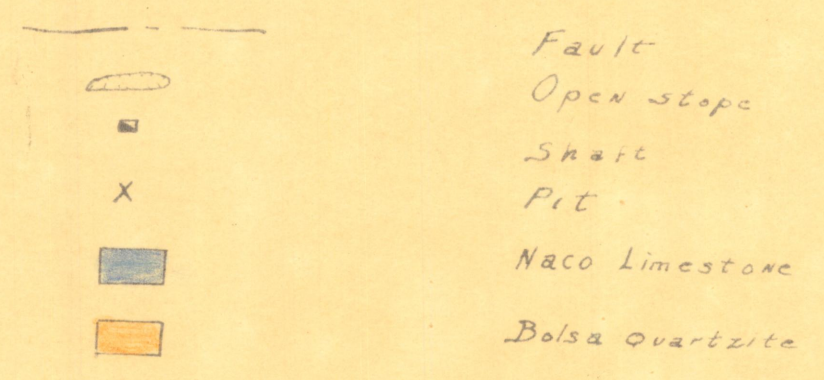 Fault
Open stope
Shaft
X
Pit
Naco Limestone
Bolsa Quartzite